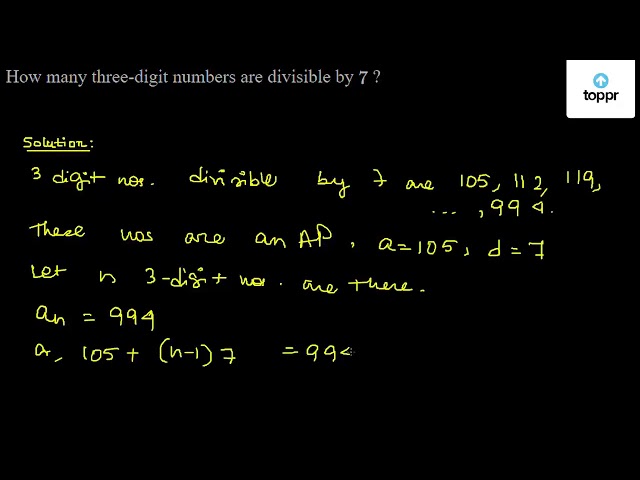 How many three-digit numbers are divisible by 7 ?
toppr
Solution:
3 digit nos. divisible by 7 are 105, 112, 119,
..., 994.
These nos are an AP, a=105, d=7
Let n 3-digit nos. are there.
an = 994
a, 105 + (n-1) 7 = 994